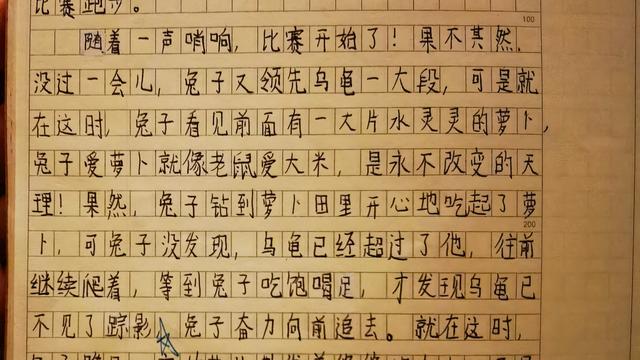 比赛跑步。
100
随着一声哨响，比赛开始了！果不其然，
没过一会儿，兔子又领先乌龟一大段，可是就
在这时，兔子看见前面有一大片水灵灵的萝卜，
兔子爱萝卜就像老鼠爱大米，是永不改变的天
理！果然，兔子钻到萝卜田里开心地吃起了萝
200
卜，可兔子没发现，乌龟已经超过了他，往前
继续爬着，等到兔子吃饱喝足，才发现乌龟已
不见了踪影，兔子奋力向前追去。就在这时，